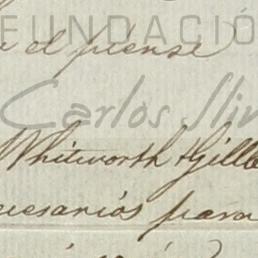 FUNDACIÓ
el piense
Carlos Slim
Whitworth & Gille
cesarios para